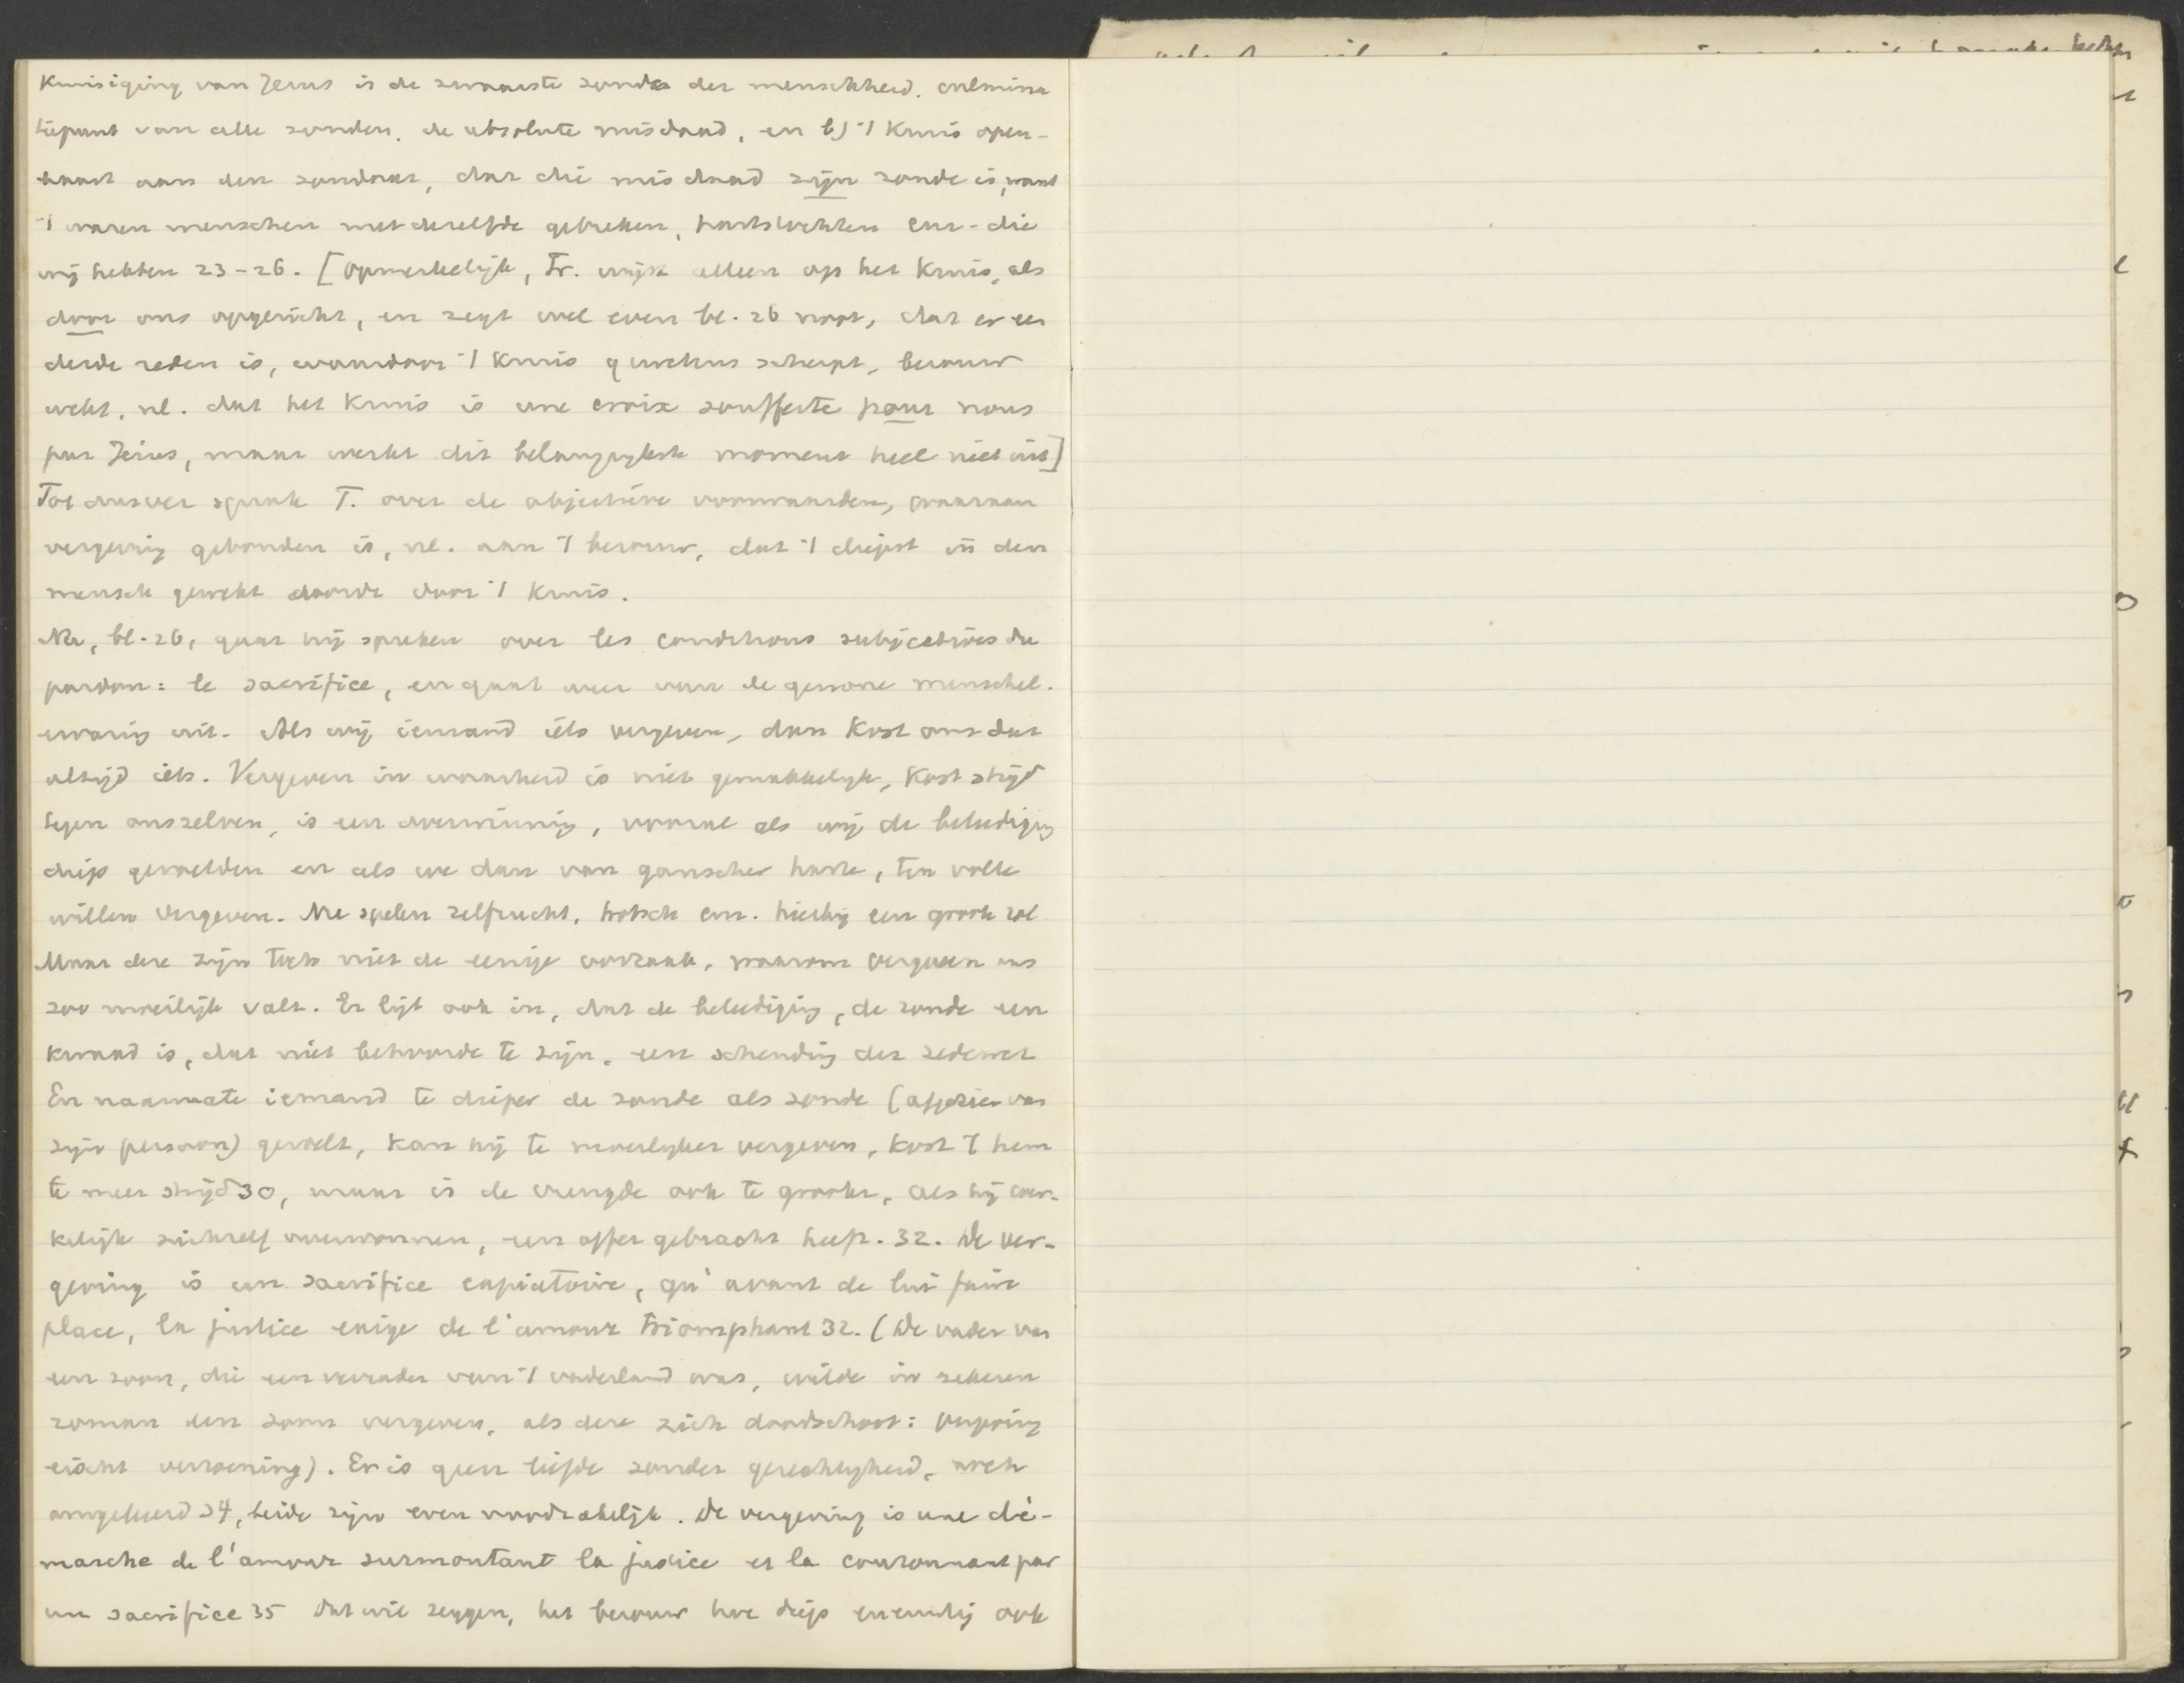 Kruisiging van Jezus is de zwaarste zonde der menschheid. culmina
tiepunt van alle zonden. de absolute misdaad, en bij 't kruis open-
baart aan den zondaar, dat die misdaad zijn zonde is, want
't waren menschen met dezelfde gebreken, hartstochten enz. die
wij hebben 23-26. [opmerkelijk, Fr. wijst alleen op het kruis, als
door ons opgericht, en zegt wel even bl. 26 noot, dat er een
derde reden is, waardoor 't kruis 't geweten scherpt, berouw
wekt, nl. dat het kruis is une croix soufferte pour nous
par Jésus, maar werkt dit belangrijkste moment heel niet uit]
Tot dusver sprak F. over de objectieve voorwaarden, waaraan
vergeving gebonden is, nl. aan 't berouw, dat 't diepst in den
mensch gewekt wordt door 't kruis.
Nu, bl. 26, gaat hij spreken over les conditions subjectives du
pardon: le sacrifice, en gaat weer van de gewone menschel.
ervaring uit. Als wij iemand iets vergeven, dan kost ons dat
altijd iets. Vergeven in waarheid is niet gemakkelijk, kost strijd
tegen onszelven, is een overwinning, vooral als wij de beleediging
diep gevoelden en als we dan van ganscher harte, ten volle
willen vergeven. Nu spelen zelfzucht, hoogmoed enz. hierbij een groote rol
Maar deze zijn toch niet de eenige oorzaak, waarom vergeven ons
zoo moeilijk valt. Er ligt ook in, dat de beleediging, de zonde een
kwaad is, dat niet behoorde te zijn, een schending der zedewet
En naarmate iemand te dieper de zonde als zonde (afgezien van
zijn persoon) gevoelt, kan hij te moeilijker vergeven, kost 't hem
te meer strijd 30, maar is de vreugde ook te grooter, als hij wer-
kelijk zichzelf overwonnen, een offer gebracht heeft. 32. De ver-
geving is een sacrifice expiatoire, qu'avant de lui faire
place, la justice exige de l'amour triomphant 32. (De vader van
een zoon, die een verrader van 't vaderland was, wilde in zekeren
roman den zoon vergeven, als deze zich doodschoot: vergeving
eischt verzoening). Er is geen liefde zonder gerechtigheid, noch
omgekeerd 34, beide zijn even noodzakelijk. De vergeving is une dé-
marche de l'amour surmontant la justice et la couronnant par
un sacrifice 35 Dat wil zeggen, het berouw hoe diep en ernstig ook